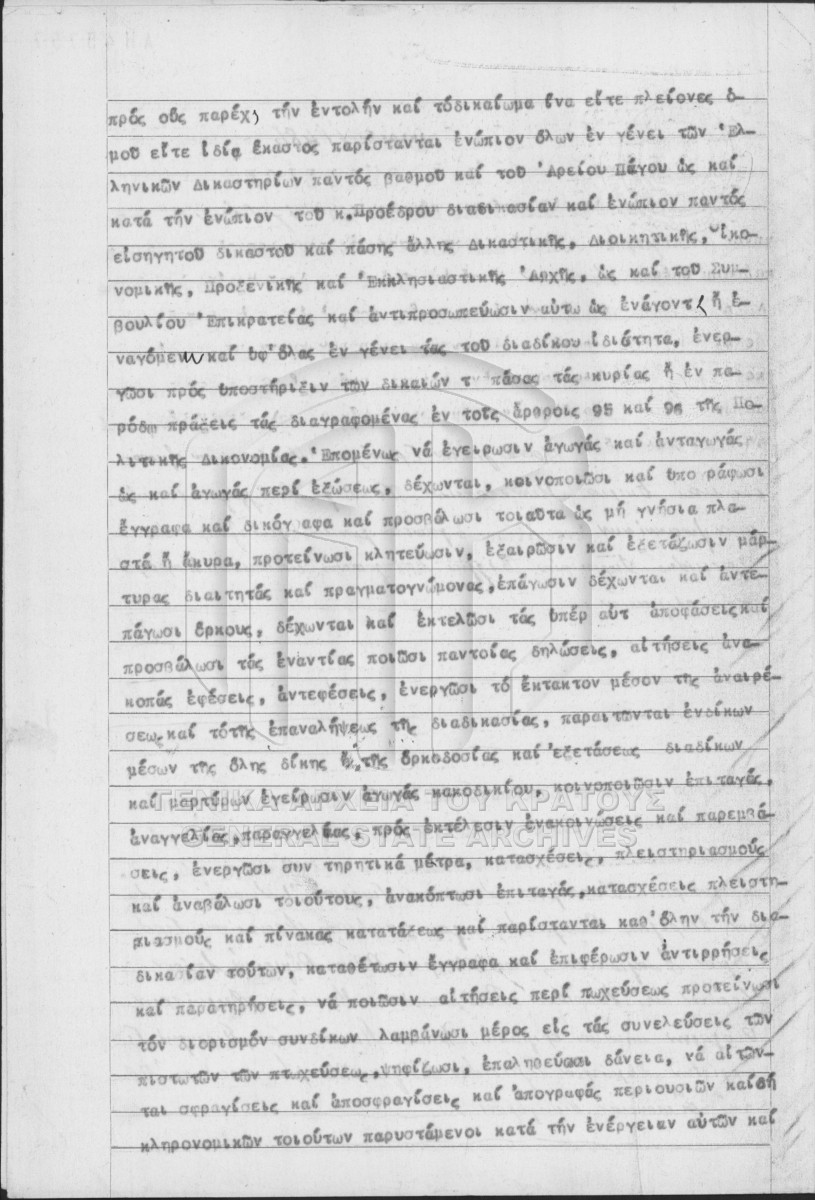 πρός οὕς παρέχ, τήν ἐντολήν καί τόδικαίωμα ἵνα εἴτε πλείονες ὁ-
μοῦ εἴτε ἰδίᾳ ἕκαστος παρίστανται ἐνώπιον ὅλων ἐν γένει τῶν Ἑλ-
ληνικῶν Δικαστηρίων παντός βαθμοῦ καί τοῦ Ἀρείου Πάγου ὡς καί
κατά τήν ἐνώπιον τοῦ κ.Προέδρου διαδικασίαν καί ἐνώπιον παντός
εἰσηγητοῦ δικαστοῦ καί πάσης ἄλλης Δικαστικῆς, Διοικητικῆς, Οἰκο-
νομικῆς, Προξενικῆς καί Ἐκκλησιαστικῆς Ἀρχῆς, ὡς καί τοῦ Συμ-
βουλίου Ἐπικρατείας καί ἀντιπροσωπεύωσιν αὐτω ὡς ἐνάγοντ ἤ ἐ-
ναγόμεν καί ὑφ'ὅλας ἐν γένει τάς τοῦ διαδίκου ἰδιότητα, ἐνερ-
γῶσι πρός ὑποστήριξιν τῶν δικαιών τ πάσας τάς κυρίας ἤ ἐν πα-
ρόδῳ πράξεις τάς διαγραφομένας ἐν τοῖς ἄρθροις 95 καί 96 τῆς Πο-
λιτικῆς Δικονομίας. Ἑπομένως νά ἐγείρωσιν ἀγωγάς καί ἀνταγωγάς
ὡς καί ἀγωγάς περί ἐξώσεως, δέχωνται, κοινοποιῶσι καί ὑπο ράφωσι
ἔγγραφα καί δικόγραφα καί προσβάλωσι τοιαῦτα ὡς μή γνήσια πλα-
στά ἤ ἄκυρα, προτείνωσι κλητεύωσιν, ἐξαιρῶσιν καί ἐξετάζωσιν μάρ-
τυρας διαιτητάς καί πραγματογνώμονας, ἐπάγωσιν δέχωνται καί ἀντε-
πάγωσι ὅρκους, δέχωνται καί ἐκτελῶσι τάς ὑπέρ αὐτ ἀποφάσειςκαί
προσβάλωσι τάς ἐναντίας ποιῶσι παντοίας δηλώσεις, αἰτήσεις ἀνα-
κοπάς ἐφέσεις, ἀντεφέσεις, ἐνεργῶσι τό ἔκτακτον μέσον τῆς ἀναιρέ-
σεως καί τότῆς ἐπαναλήψεως τῆς διαδικασίας, παραιτῶνται ἐνδίκων
μέσων τῆς ὅλης δίκης ἤ τῆς ὁρκοδοσίας καί ἐξετάσεως διαδίκων
καί μαρτύρων ἐγείρωσιν ἀγωγάς κακοδικίου, κοινοποιῶσιν ἐπιταγάς,
ἀναγγελίας, παραγγελίας, πρός ἐκτέλεσιν ἀνακοινώσεις καί παρεμβά-
σεις, ἐνεργῶσι συν τηρητικά μέτρα, κατασχέσεις, πλειστηριασμούς
καί ἀναβάλωσι τοιούτους, ἀνακόπτωσι ἐπιταγάς, κατασχέσεις πλειστη-
ριασμούς καί πίνακας κατατάξεως καί παρίστανται καθ'ὅλην τήν δια-
δικασίαν τούτων, καταθέτωσιν ἔγγραφα καί ἐπιφέρωσιν ἀντιρρήσεις
καί παρατηρήσεις, νά ποιῶσιν αἰτήσεις περί πωχεύσεως προτείνωσι
τόν διορισμόν συνδίκων λαμβάνωσι μέρος εἰς τάς συνελεύσεις τῶν
πιστωτῶν τῶν πτωχεύσεως, ψηφίζωσι, ἐπαληθεύωσι δάνεια, νά αἰτῶν-
ται σφραγίσεις καί ἀποσφραγίσεις καί ἀπογραφάς περιουσιῶν καίδή
κληρονομικῶν τοιούτων παρυστάμενοι κατά τήν ἐνέργειαν αὐτῶν καί
ΓΕΝΙΚΑ ΑΡΧΕΙΑ ΤΟΥ ΚΡΑΤΟΥΣ
GENERAL STATE ARCHIVES